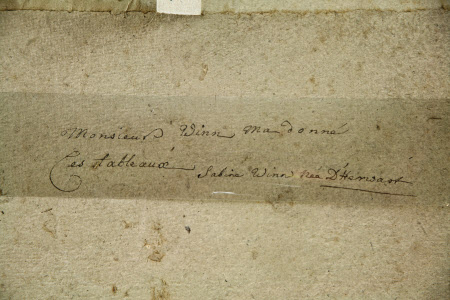 Monsieur Winn ma donné
Ces tableaux Sabine Winn née D'Herwart